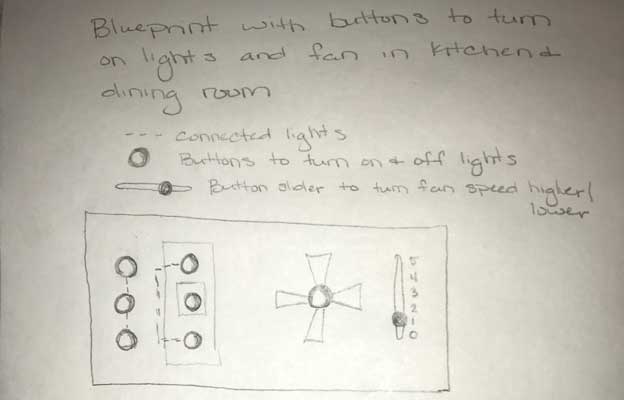 Blueprint with buttons to turn
on lights and fan in kitchen &
dining room
--- connected lights
Buttons to turn on & off lights
Button slider to turn fan speed higher/
lower
5
4
3
2
1
0